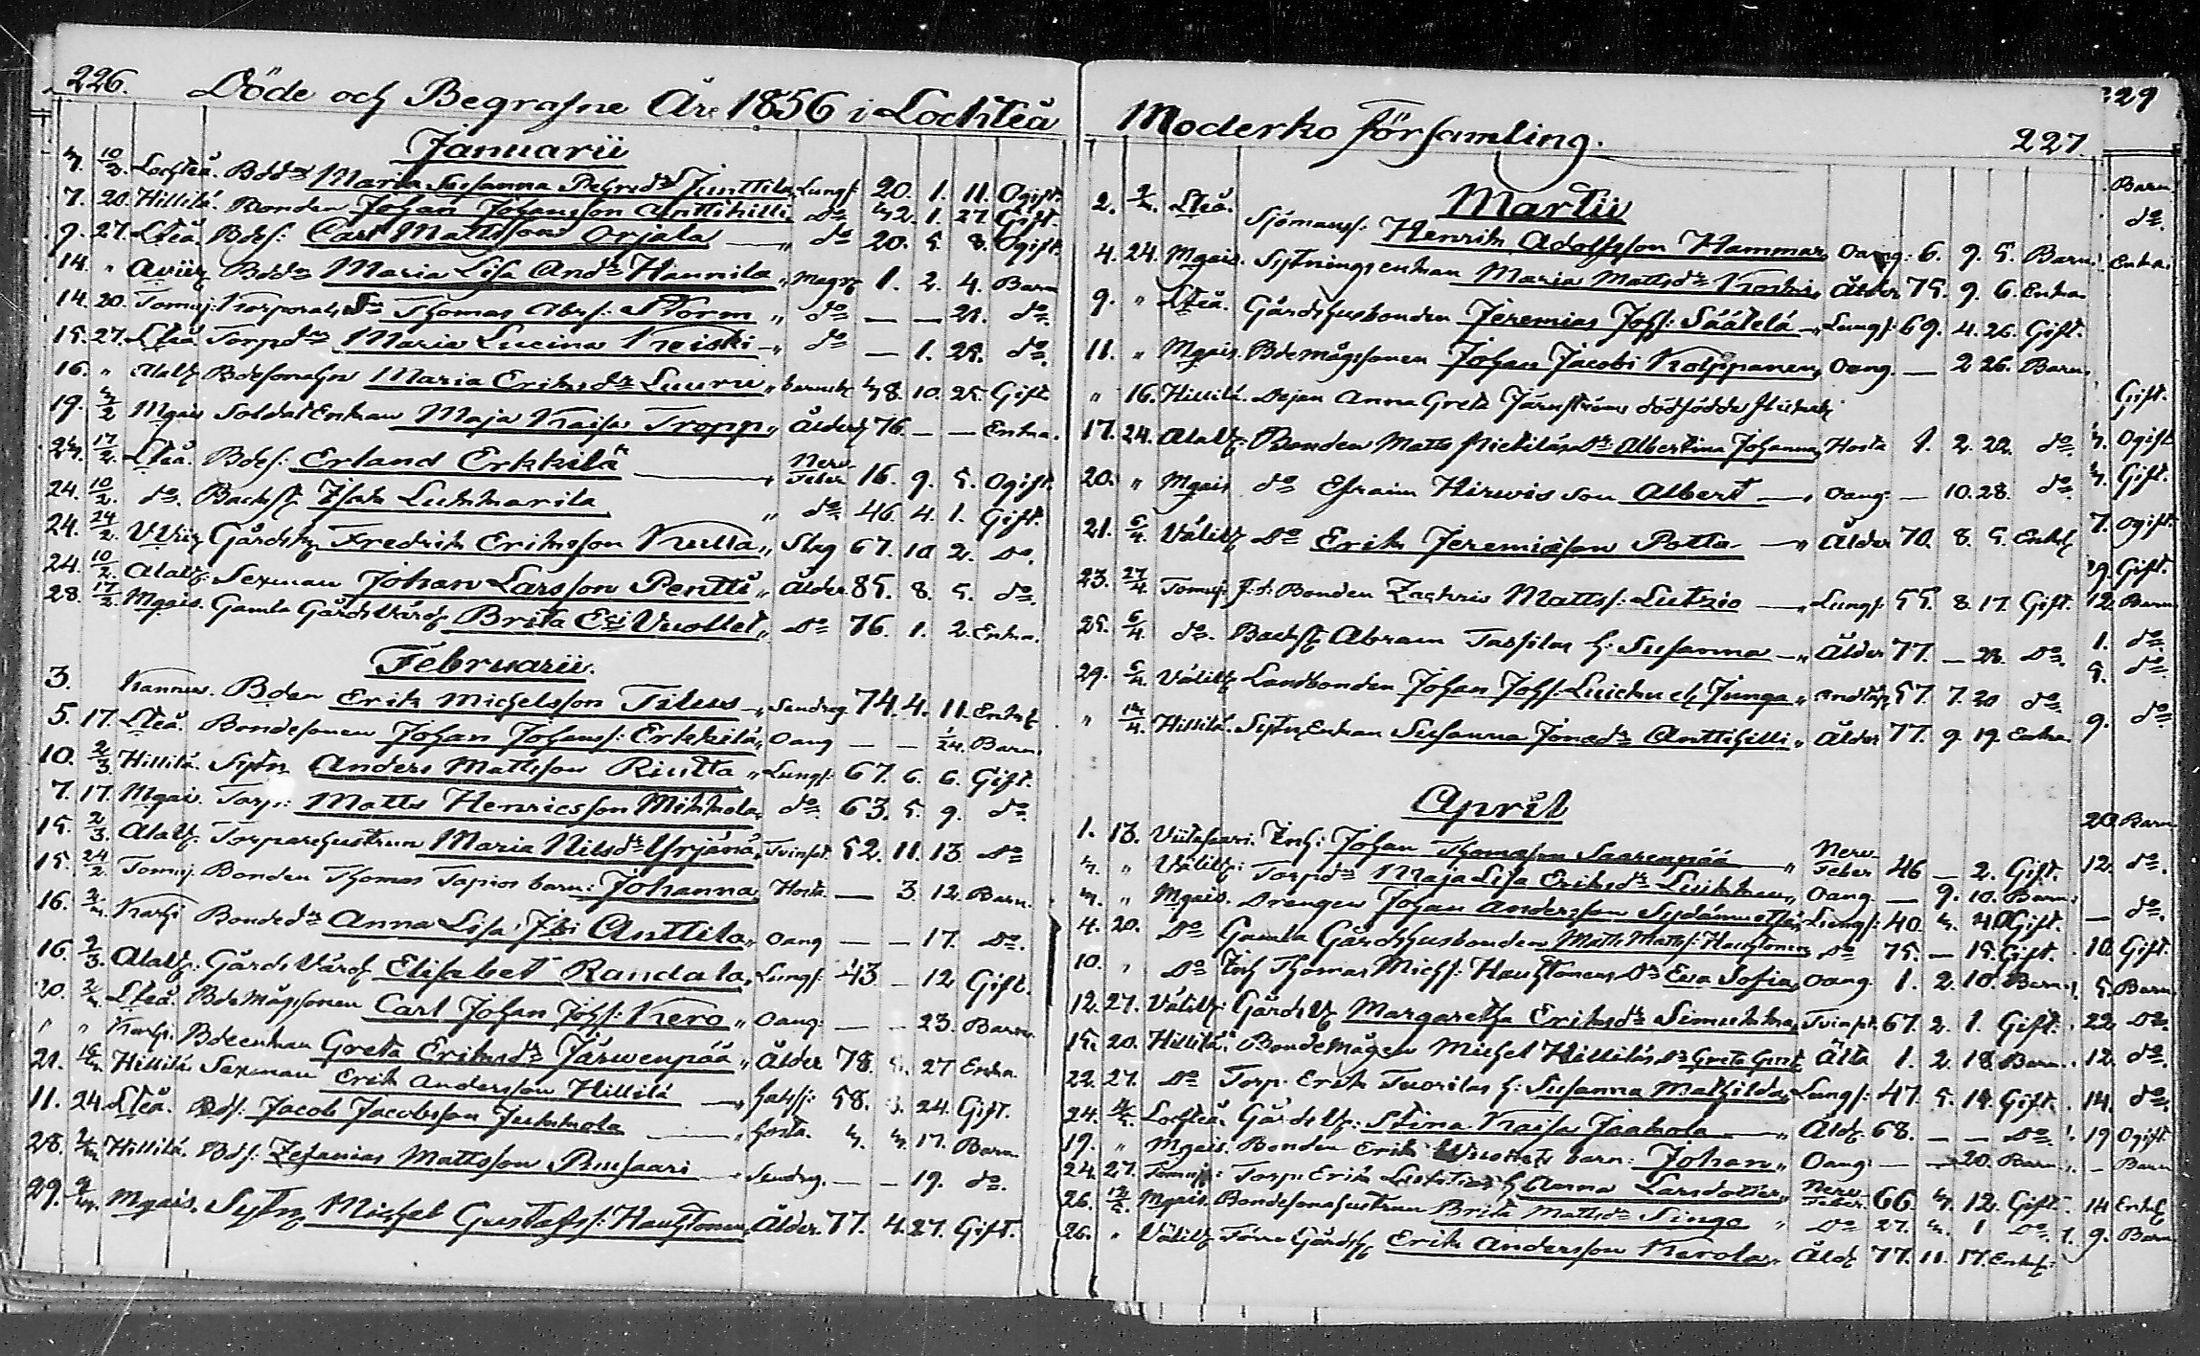 226.
Döde och Begrafne År 1856 i Lochteå
Januarii
4. 10/2 Lochteå. Bdd:r Maria Susanna Junttila Lungs: 20. 1. 11. Ogift.
7. 20. Hillilä. Bonden Johan Johansson Anttihilli Do 42. 1. 27. Gift.
9. 27. Lteå. Bdes: Carl Mattsson Orjala " do 20. 5. 8. Ogift.
14. " Maria Lisa And:dr Hannila " 1. 2. 4. Barn
14. 20. Tomuj. Korporals Thomas Storm " do — — 21. do.
15. 27. Lteå Torpd:r Maria Lucina Keiski " do — 1. 25. do.
16. " Alatz Maria Eriksd:r Luuru " barnsb 48. 10. 25. Gift.
19. 4/2 Mgais Soldat Enkan Maja Kaisa Tropp " Ålder 76. — — Enka.
24. 17/2. Lteå. Bdes: Erland Erkkilä " Nerv Feber 16. 9. 5. Ogift
24. 10/2. do. Backst. Isak Lukkarila " do 46. 4. 1. Gift.
24. 24/2. Fredrik Eriksson Kulla " 67. 10 2. Do.
24. 10/2. Alatz. Sexman Johan Larsson Pentti " Ålder 85. 8. 5. do.
28. 17/2. Mgais. Gamla Gårds Värd Brita Vuollet " Do 76. 1. 2. Enka.
Februarii.
3. Kannus. Bden Erik Michelsson Tilus " 74. 4. 11. Enkl
5. 17. Lteå. Bondesonen Johan Johanss: Erkkilä " Oang — — 1/24. Barn.
10. 2/3. Hillilä. Sytn Anders Mattsson Riutta " Lungs: 67. 6. 6. Gift.
7. 17. Mgais. Torp: Matts Henricsson Mikkola " do. 63. 5. 9. do.
15. 2/3. Alatz. Torparehustrun Maria Nilsd:r Yrjänä " Tvinsot. 52. 11. 13. Do
15. 24/2 Tomuj. Bonden Thomas Tapios barn: Johanna Hosta. — 3 12. Barn.
16. 2/3. Karhi Bonded:r Anna Lisa Anttila " Oang — — 17. Do.
16. 2/3. Alatz. Gårds Värd Elisabet Randala " Lungs: 43 — 12 Gift.
20. 2/3. Lteå. Bde Mågssonen Carl Johan Johs: Kero " Oang: — — 23. Barn.
" " Karhi. Bdeenkan Greta Eriksd:r Järwenpää " Ålder 78. 5. 27 Enka.
21. Hillilä Sexman Erik Andersson Hillilä " 58. 3. 24. Gift.
11. 24. Lteå. Bds: Jacob Jacobsson Jukkola " hosta. 4. 4. 17. Barn
28. Hillilä. Bds: Zefanias Mattsson Riusaari — 19. do.
29. Mgais. Sytn Michel Gustafss: Hauhtonen " Ålder. 77. 4. 27. Gift.
Moderko församling.
227.
Martii
2. Lteå. Sjömans: Henrik Adolfsson Hammar Oang: 6. 9. 5. Barn.
4. 24. Mgais. Sytningsenkan Maria Mattsd:r Koskis Ålder 75. 9. 6. Enka
9. " Lteå. Gårdshusbonden Jeremias Johs: Säätelä " Lungs: 69. 4. 26. Gift.
11. " Mgais. Bdemågssonen Johan Jacobi Kolppanen Oang. — 2 26. Barn.
" 16. Hillilä. Pejan Anna Greta Järnströms dödfödde
17. 24. Alatz: Bonden Matts Pietiläs dr Albertina Johanna Hosta 1. 2. 22. do.
20. " Mgais do Efraim Hirwis son Albert " Oang: — 10. 28. do.
21. 6/4. Välitz Do Erik Jeremiasson Potta " Ålder 70. 8. 5. Enkl
23. 27/4 Tomuj. Bonden Zachris Matts: Lutzio " Lungs: 55. 8. 17. Gift.
25. 6/4. do. Backst Abram Tassilas h: Susanna " Ålder 77. — 28. Do.
29. 6/4. Välitz Landbonden Johan Johs: Junga " 57. 7. 20 do.
" Hillilä. Enkan Susanna Jonæd:r Anttihilli " Ålder 77. 9. 19. Enka.
April
1. 13. Viitasaari. Johan Thomasson Saarenpää " Nerv Feber 46 — 2. Gift.
4. " Välitz: Torpd:r Maja Lisa Eriksd:r Luikku " Oang — 9. 10. Barn.
4. " Mgais. Drengen Johan Andersson Sydänmetsä Lungs: 40. 4. Gift.
4. 20. Do Gamla Gårdshusbonden Matts Matts: Hauhtonen Do 75. — 15. Gift.
10. " Do Thomas Michs: Hauhtonens dr Eva Sofia Oang. 1. 2. 10. Barn.
12. 27. Välitz: Margaretha Eriksd:r Simukka Tvinsot. 67. 2. 1. Gift.
15. 20. Hillilä. BondeMågen Michel Hilliläs dr Greta Älta 1. 2. 18. Barn.
22. 27. Do Torp. Erik Tuorilas h: Susanna Mathilda Lungs: 47. 5. 14. Gift.
24. Lochteå. Stina Kaisa Jaakola " Åld: 68. — — Do.
19. " Mgais. Bonden Erik Vuollets barn: Johan " Oang — 20. Barn
24. 27. Tomuj: Torp. Erik h: Anna Larsdotter " Nerv Feber. 66 4. 12. Gift
26. Mgais. Bondesonahustrun Brita Mattsd:r Singo " Do 27. 4. 1 Do.
26. " Välitz Förre Gårdsh Erik Andersson Kerola " Åld 77. 11. 17. Enkl:
229
Barn
do.
Enka
Gift.
4. Ogift
4. Gift.
7. Ogift.
29. Gift.
12. Barn
1. do.
5. do.
9. do.
20. Barn
12. do.
— do.
10. Gift.
5. Barn
22. Do.
12. do.
14. do.
19 Ogift
— Barn
14 Enkl
9. Barn